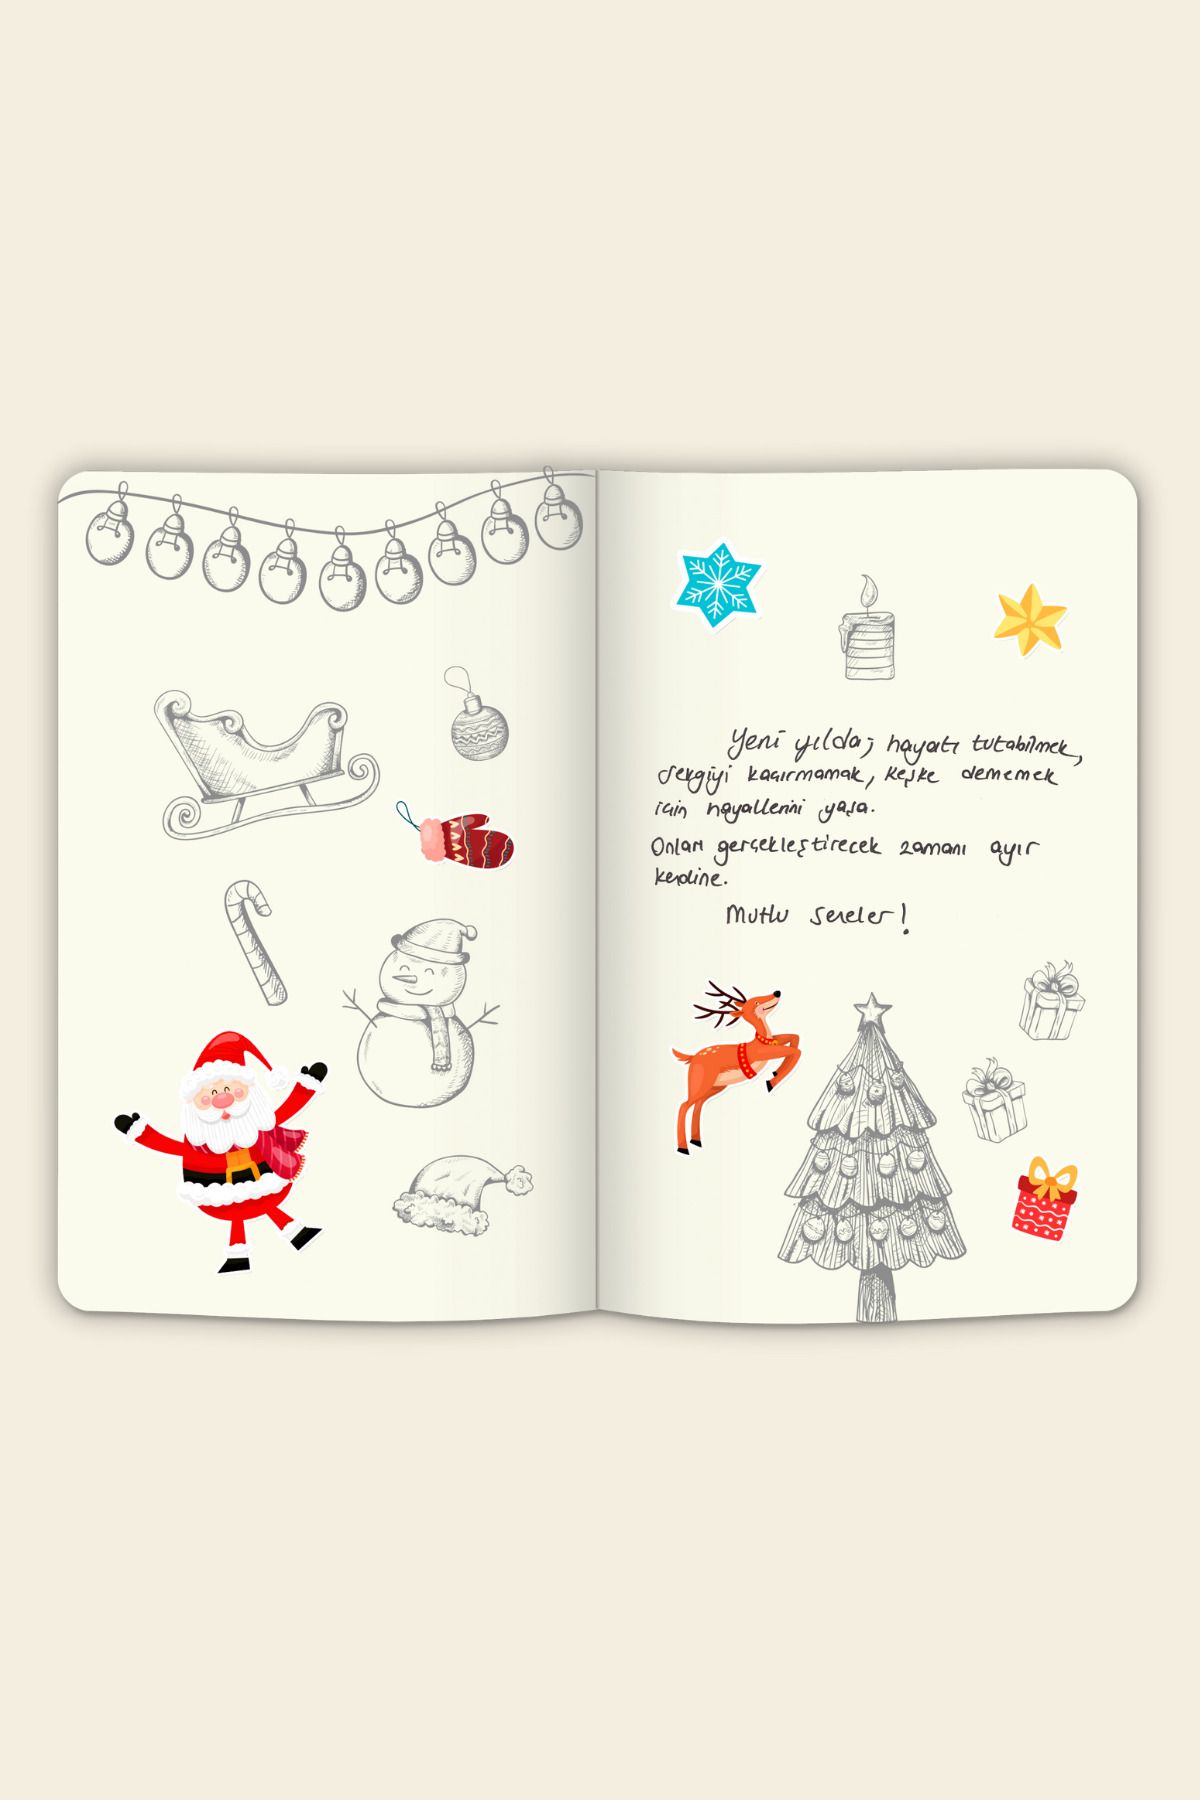 Yeni yılda; hayatı tutabilmek,
sevgiyi kaçırmamak, keşke dememek
için hayallerini yaşa.
Onları gerçekleştirecek zamanı ayır
kendine.
Mutlu seneler!